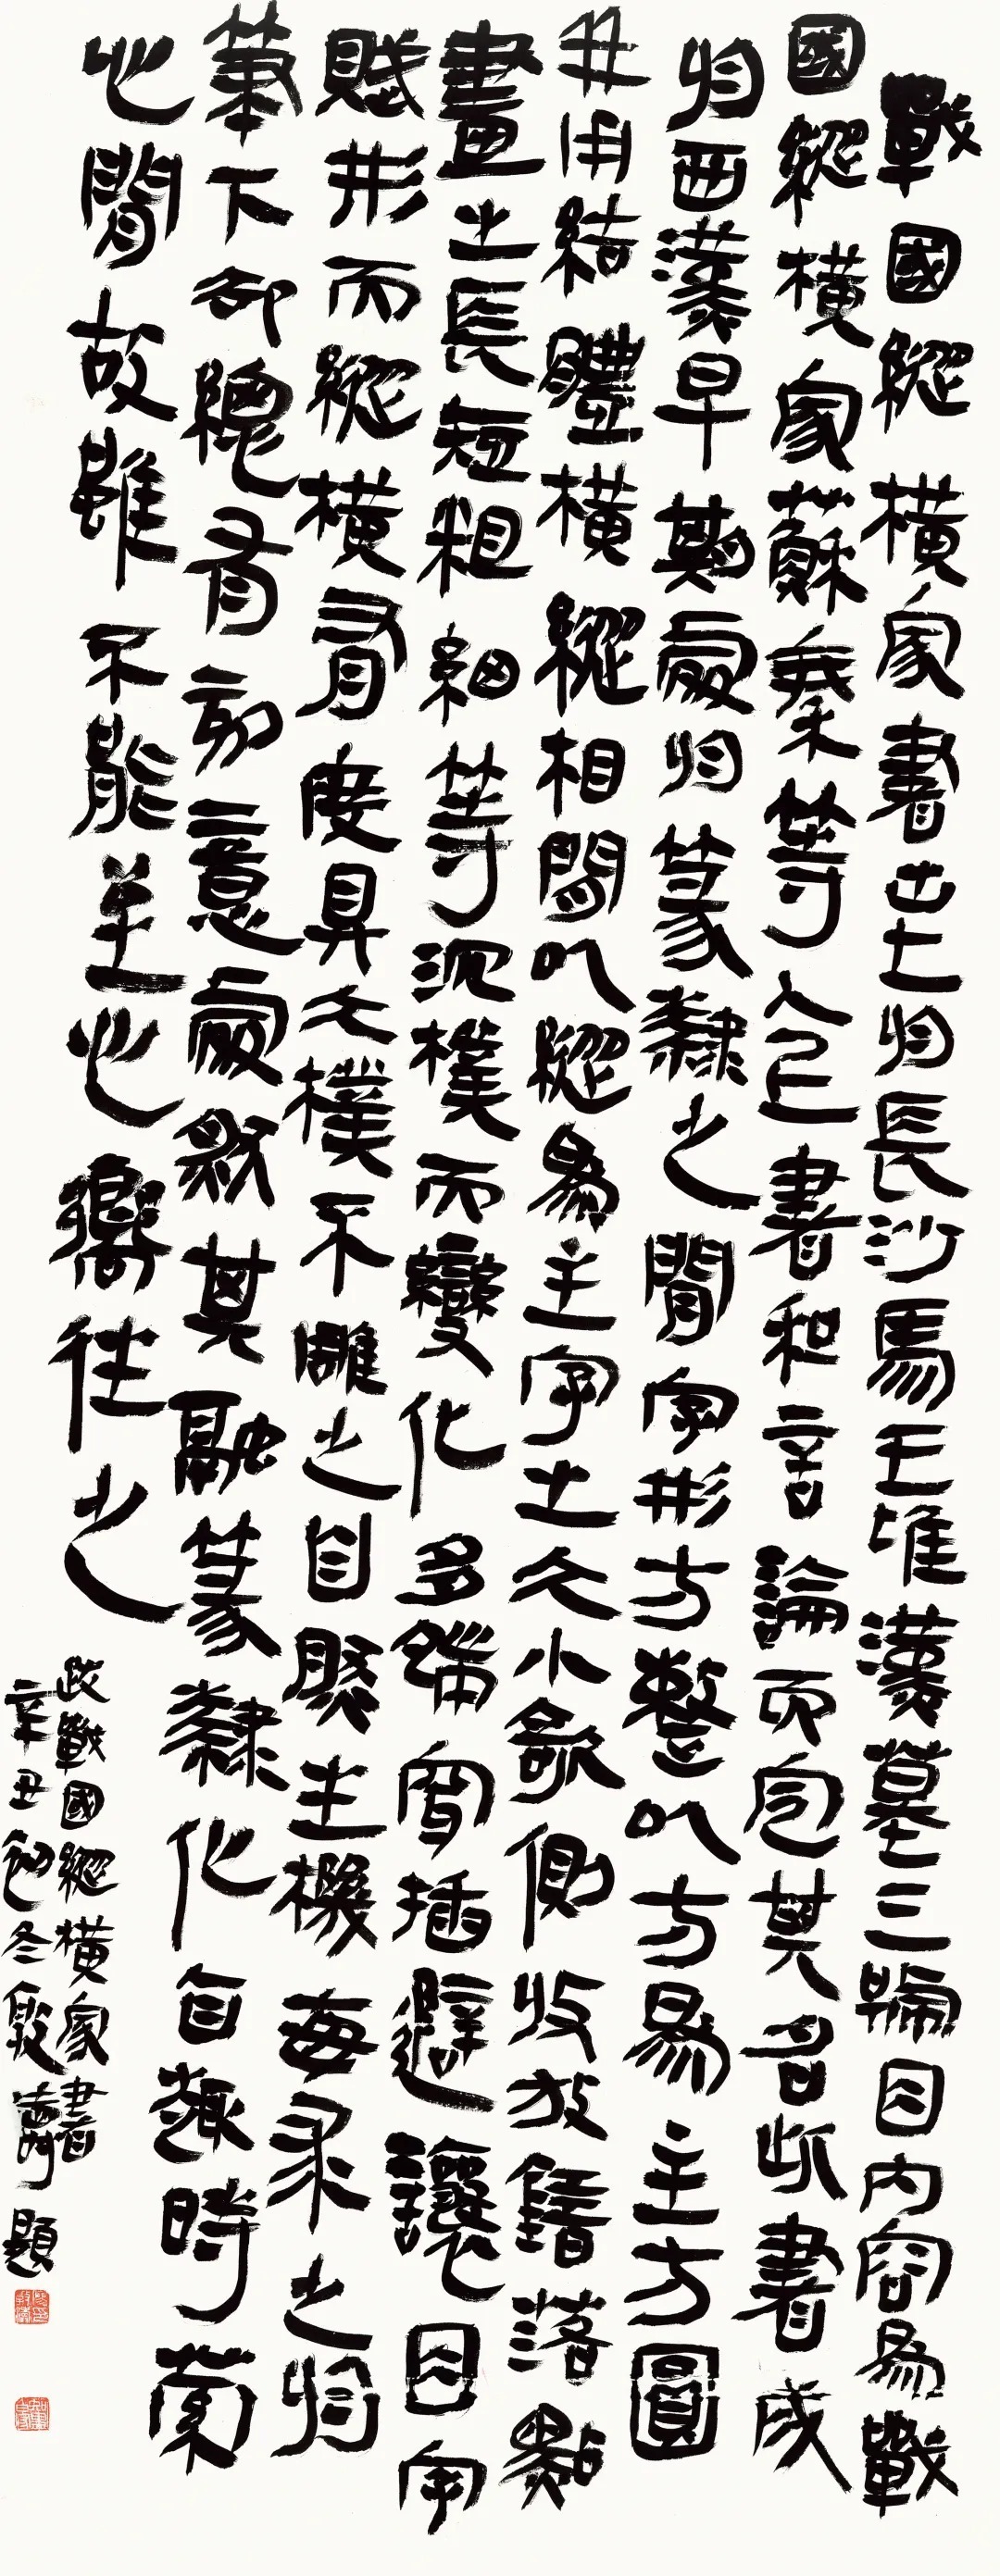 戰國縱橫家書出土於長沙馬王堆漢墓三號因内容爲戰
國縱橫家蘇秦等人書和言論而定其名此書成
於西漢早期處於篆隸之間字形方整以方爲主方圓
并用結體橫縱相間以縱爲主字之大小欹側收放錯落點
畫之長短粗細等沉樸而變化多端穿插避讓因字
賦形而縱橫有度具大樸不雕之自然生機每求之於
筆下却總有刻意處然其融篆隸化自趣時縈
心間故雖不能至心嚮往之
跋戰國縱橫家書
辛丑初冬題